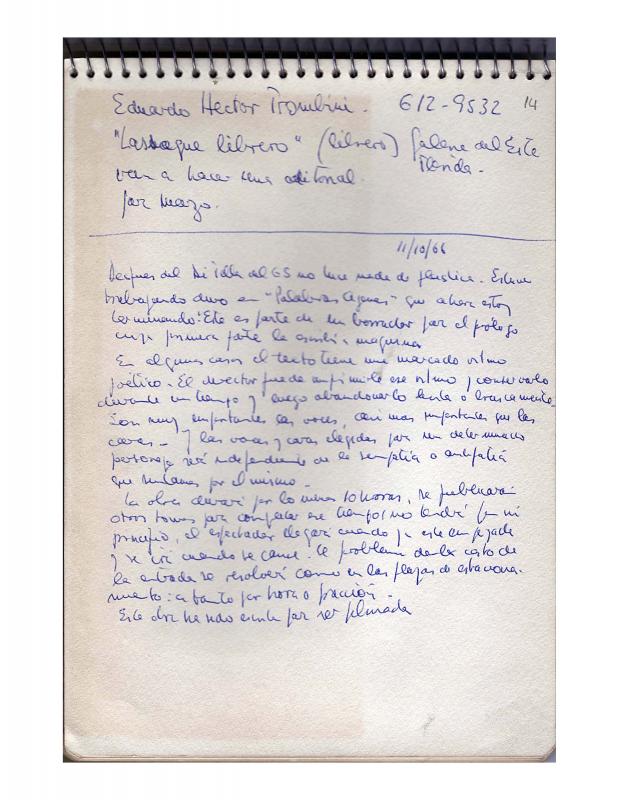 Eduardo Hector Trombini. 612-9532 14
"Lastaque librero" (librero) Galeria del Este
van a hacer una editorial. Florida.
por marzo.
11/10/66
Despues del Di Tella del 65 no hice nada de plastica. Estuve
trabajando duro en "Palabras Ajenas" que ahora estoy
terminando. Este es parte de un borrador por el prólogo
cuya primera parte la escribí a maquina
En algunos casos el texto tiene un marcado ritmo
poético. El director puede imprimirle ese ritmo y conservarlo
durante un tiempo y luego abandonarlo lenta o bruscamente.
Son muy importantes las voces, casi mas importantes que las
caras. Y las voces y caras elegidas por un determinado
personaje será independiente de la simpatía o antipatía
que sintamos por el mismo.
La obra durará por lo menos 10 horas, se publicarán
otros tomos para completar ese tiempo, no tendrá fin ni
principio, el espectador llegará cuando ya este empezada
y se irá cuando se canse. El problema del costo de
la entrada se resolverá como en las playas de estaciona-
miento: a tanto por hora o fracción.
Esta obra ha sido escrita para ser filmada